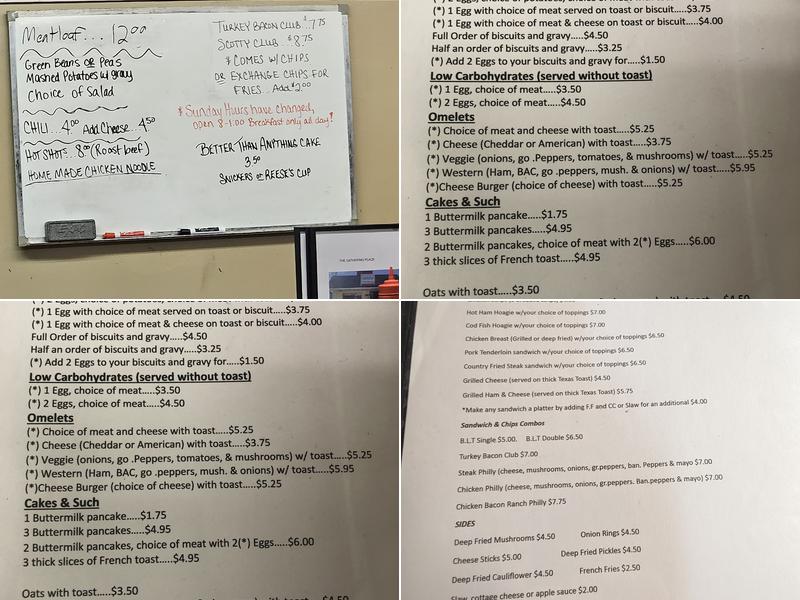 Meatloaf... 12.00
Green Beans OR Peas
Mashed Potatoes w/ gravy
Choice of Salad
CHILI... 4.00 Add Cheese... 4.50
HOT SHOTS.. 8.00 (Roast beef)
HOME MADE CHICKEN NOODLE
TURKEY BACON CLUB $7.75
SCOTTY CLUB $8.75
* COMES W/ CHIPS
OR EXCHANGE CHIPS FOR
FRIES... Add $2.00
* Sunday Hours have changed,
OPEN 8-1:00 Breakfast only all day!
BETTER THAN ANYTHING CAKE
3.50
SNICKERS OR REESE'S CUP
THE GATHERING PLACE
(*) 1 Egg with choice of meat served on toast or biscuit.....$3.75
(*) 1 Egg with choice of meat & cheese on toast or biscuit.....$4.00
Full Order of biscuits and gravy.....$4.50
Half an order of biscuits and gravy.....$3.25
(*) Add 2 Eggs to your biscuits and gravy for.....$1.50
Low Carbohydrates (served without toast)
(*) 1 Egg, choice of meat.....$3.50
(*) 2 Eggs, choice of meat.....$4.50
Omelets
(*) Choice of meat and cheese with toast.....$5.25
(*) Cheese (Cheddar or American) with toast.....$3.75
(*) Veggie (onions, go .Peppers, tomatoes, & mushrooms) w/ toast.....$5.25
(*) Western (Ham, BAC, go .peppers, mush. & onions) w/ toast.....$5.95
(*)Cheese Burger (choice of cheese) with toast.....$5.25
Cakes & Such
1 Buttermilk pancake.....$1.75
3 Buttermilk pancakes.....$4.95
2 Buttermilk pancakes, choice of meat with 2(*) Eggs.....$6.00
3 thick slices of French toast.....$4.95
Oats with toast.....$3.50
(*) 1 Egg with choice of meat served on toast or biscuit.....$3.75
(*) 1 Egg with choice of meat & cheese on toast or biscuit.....$4.00
Full Order of biscuits and gravy.....$4.50
Half an order of biscuits and gravy.....$3.25
(*) Add 2 Eggs to your biscuits and gravy for.....$1.50
Low Carbohydrates (served without toast)
(*) 1 Egg, choice of meat.....$3.50
(*) 2 Eggs, choice of meat.....$4.50
Omelets
(*) Choice of meat and cheese with toast.....$5.25
(*) Cheese (Cheddar or American) with toast.....$3.75
(*) Veggie (onions, go .Peppers, tomatoes, & mushrooms) w/ toast.....$5.25
(*) Western (Ham, BAC, go .peppers, mush. & onions) w/ toast.....$5.95
(*)Cheese Burger (choice of cheese) with toast.....$5.25
Cakes & Such
1 Buttermilk pancake.....$1.75
3 Buttermilk pancakes.....$4.95
2 Buttermilk pancakes, choice of meat with 2(*) Eggs.....$6.00
3 thick slices of French toast.....$4.95
Oats with toast.....$3.50
Hot Ham Hoagie w/your choice of toppings $7.00
Cod Fish Hoagie w/your choice of toppings $7.00
Chicken Breast (Grilled or deep fried) w/your choice of toppings $6.50
Pork Tenderloin sandwich w/your choice of toppings $6.50
Country Fried Steak sandwich w/your choice of toppings $6.50
Grilled Cheese (served on thick Texas Toast) $4.50
Grilled Ham & Cheese (served on thick Texas Toast) $5.75
*Make any sandwich a platter by adding F.F and CC or Slaw for an additional $4.00
Sandwich & Chips Combos
B.L.T Single $5.00. B.L.T Double $6.50
Turkey Bacon Club $7.00
Steak Philly (cheese, mushrooms, onions, gr.peppers, ban. Peppers & mayo $7.00
Chicken Philly (cheese, mushrooms, onions, gr.peppers. Ban.peppers & mayo) $7.00
Chicken Bacon Ranch Philly $7.75
SIDES
Deep Fried Mushrooms $4.50 Onion Rings $4.50
Cheese Sticks $5.00 Deep Fried Pickles $4.50
Deep Fried Cauliflower $4.50 French Fries $2.50
Slaw, cottage cheese or apple sauce $2.00